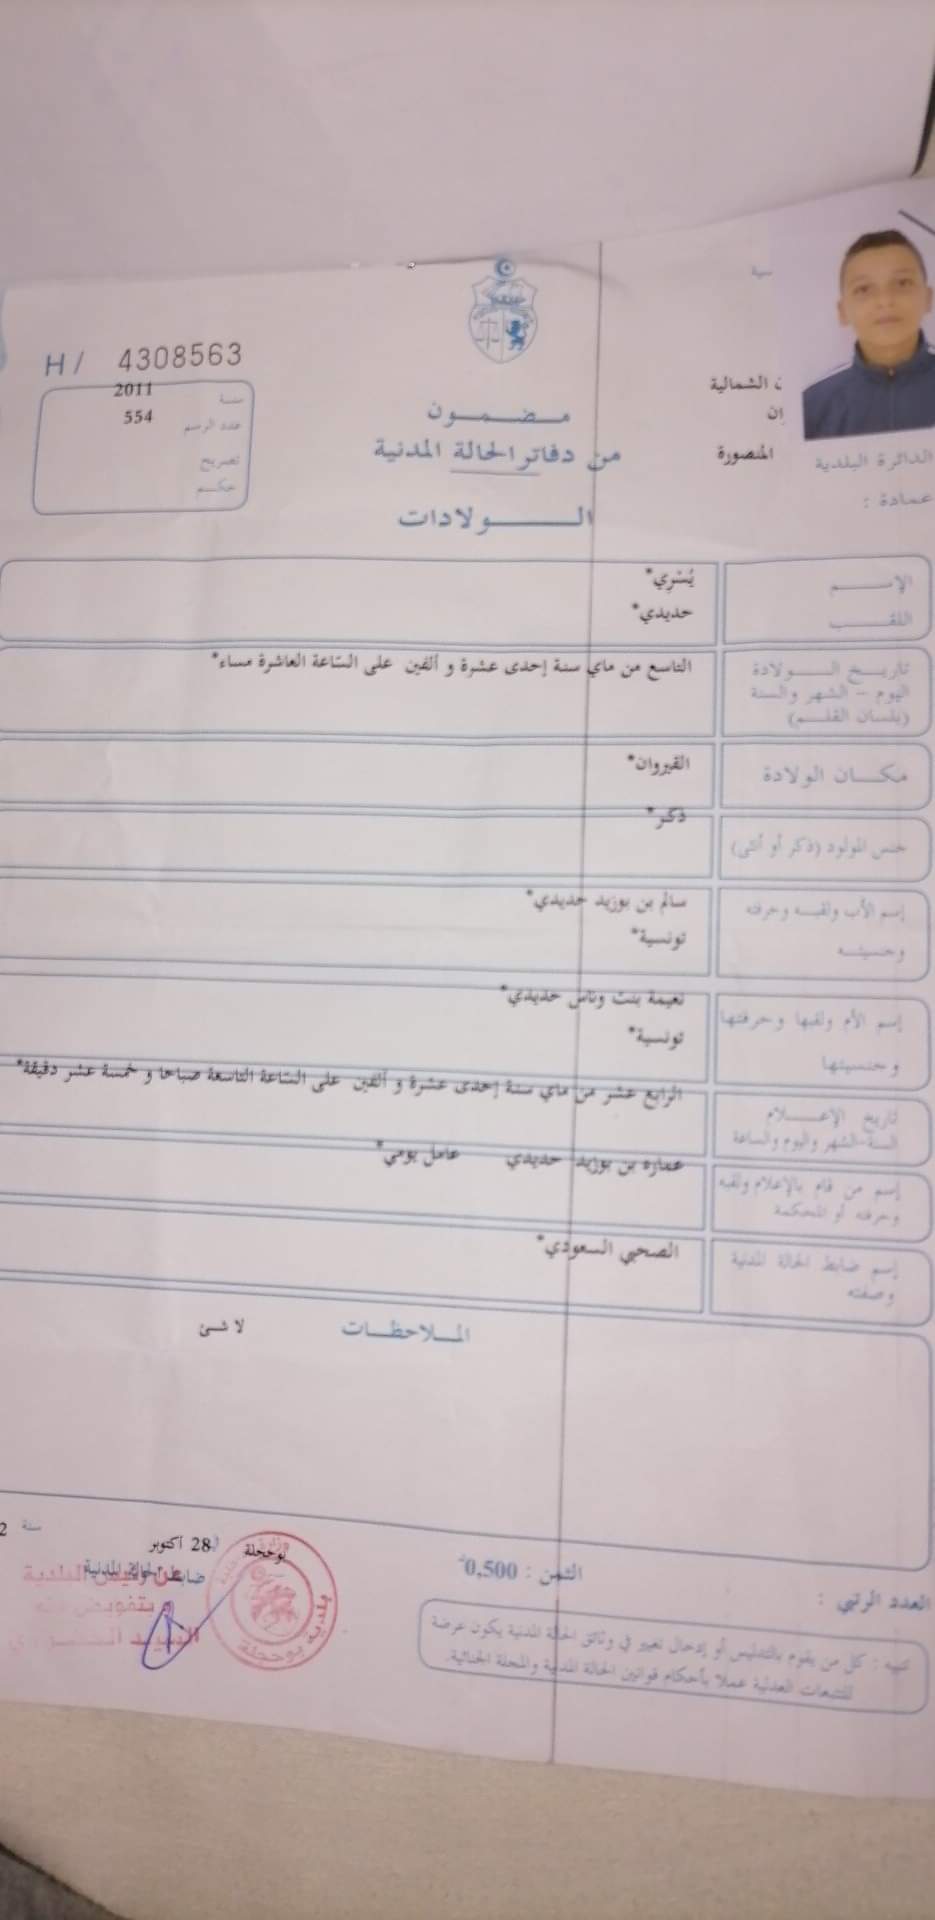 H / 4308563
سنة 2011
عدد الرسم 554
تصريح
حكم
مضمون
من دفاتر الحالة المدنية
الولادات
الشمالية
المنصورة
الدائرة البلدية
عمادة :
الإسم يُسْرِي*
اللقب حديدي*
تاريخ الولادة التاسع من ماي سنة إحدى عشرة و ألفين على السّاعة العاشرة مساء*
اليوم - الشهر والسنة
(بلسان القلم)
مكان الولادة القيروان*
ذكر*
جنس المولود (ذكر أو أنثى)
إسم الأب ولقبه وحرفته سالم بن بوزيد حديدي*
وجنسيته تونسية*
إسم الأم ولقبها وحرفتها نعيمة بنت وناس حديدي*
وجنسيتها تونسية*
تاريخ الإعلام الرابع عشر من ماي سنة إحدى عشرة و ألفين على السّاعة التاسعة صباحا و خمسة عشر دقيقة*
السنة-الشهر واليوم والساعة
إسم من قام بالإعلام ولقبه عماره بن بوزيد حديدي عامل يومي*
وحرفته أو المحكمة
إسم ضابط الحالة المدنية الصحبي السعودي*
وصفته
الملاحظات لا شئ
بوحجلة 28 أكتوبر سنة
ضابط الحالة المدنية
بلدية بوحجلة
الثمن : 0,500
العدد الرتبي :
تنبيه : كل من يقوم بالتدليس أو إدخال تغيير في وثائق الحالة المدنية يكون عرضة
للتتبعات العدلية عملا بأحكام قوانين الحالة المدنية والمجلة الجنائية.